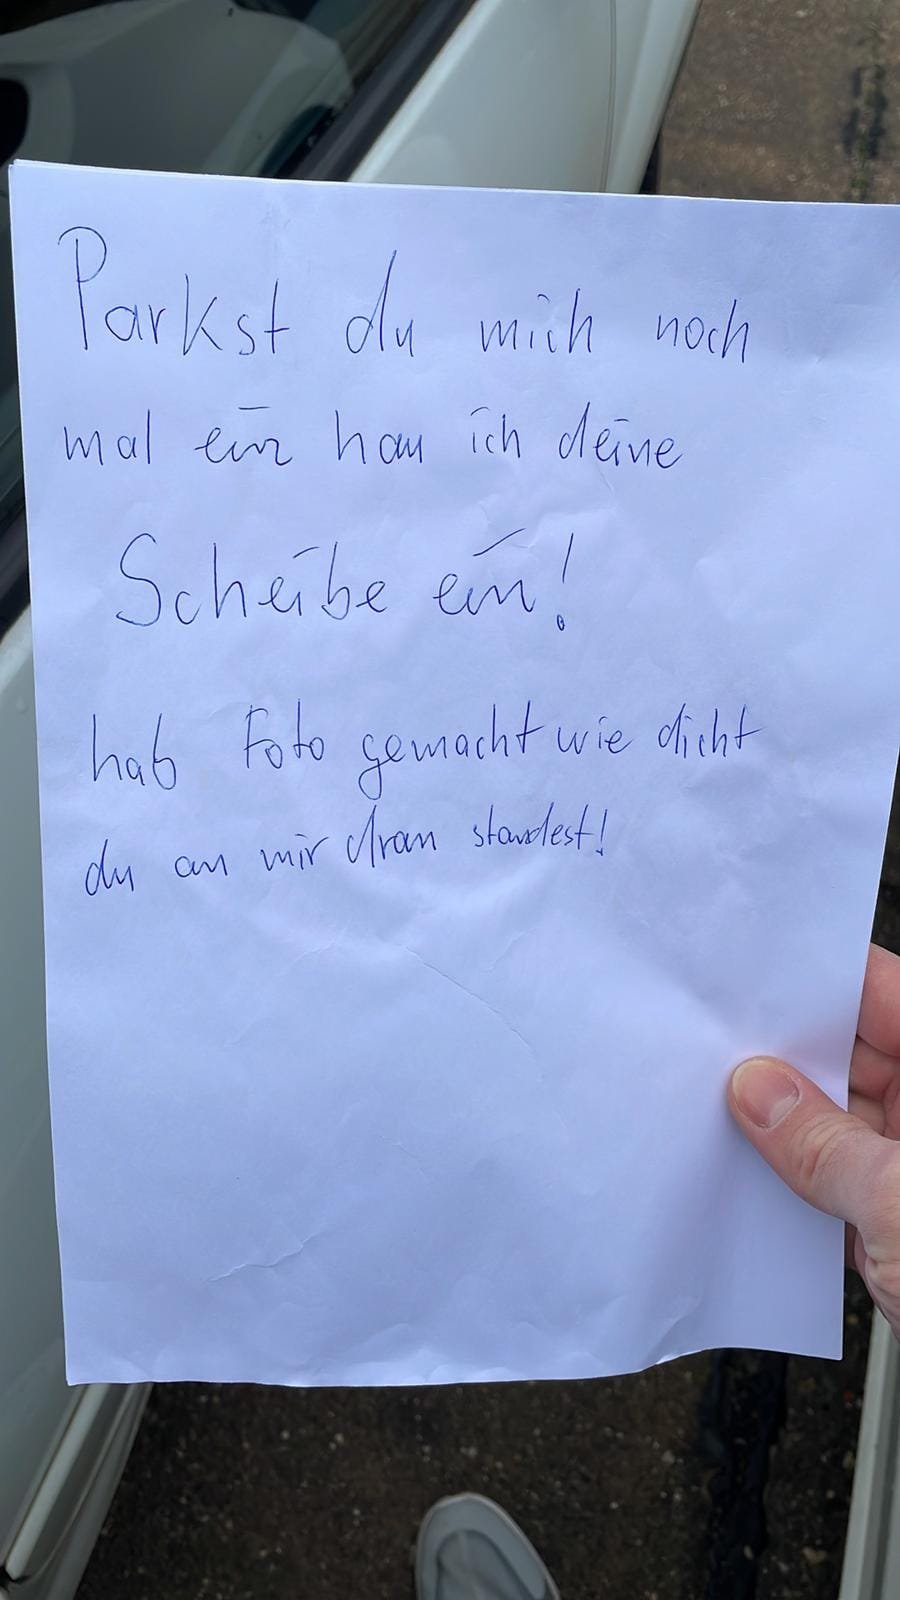 Parkst du mich noch
mal ein hau ich deine
Scheibe ein!
hab Foto gemacht wie dicht
du an mir dran standest!